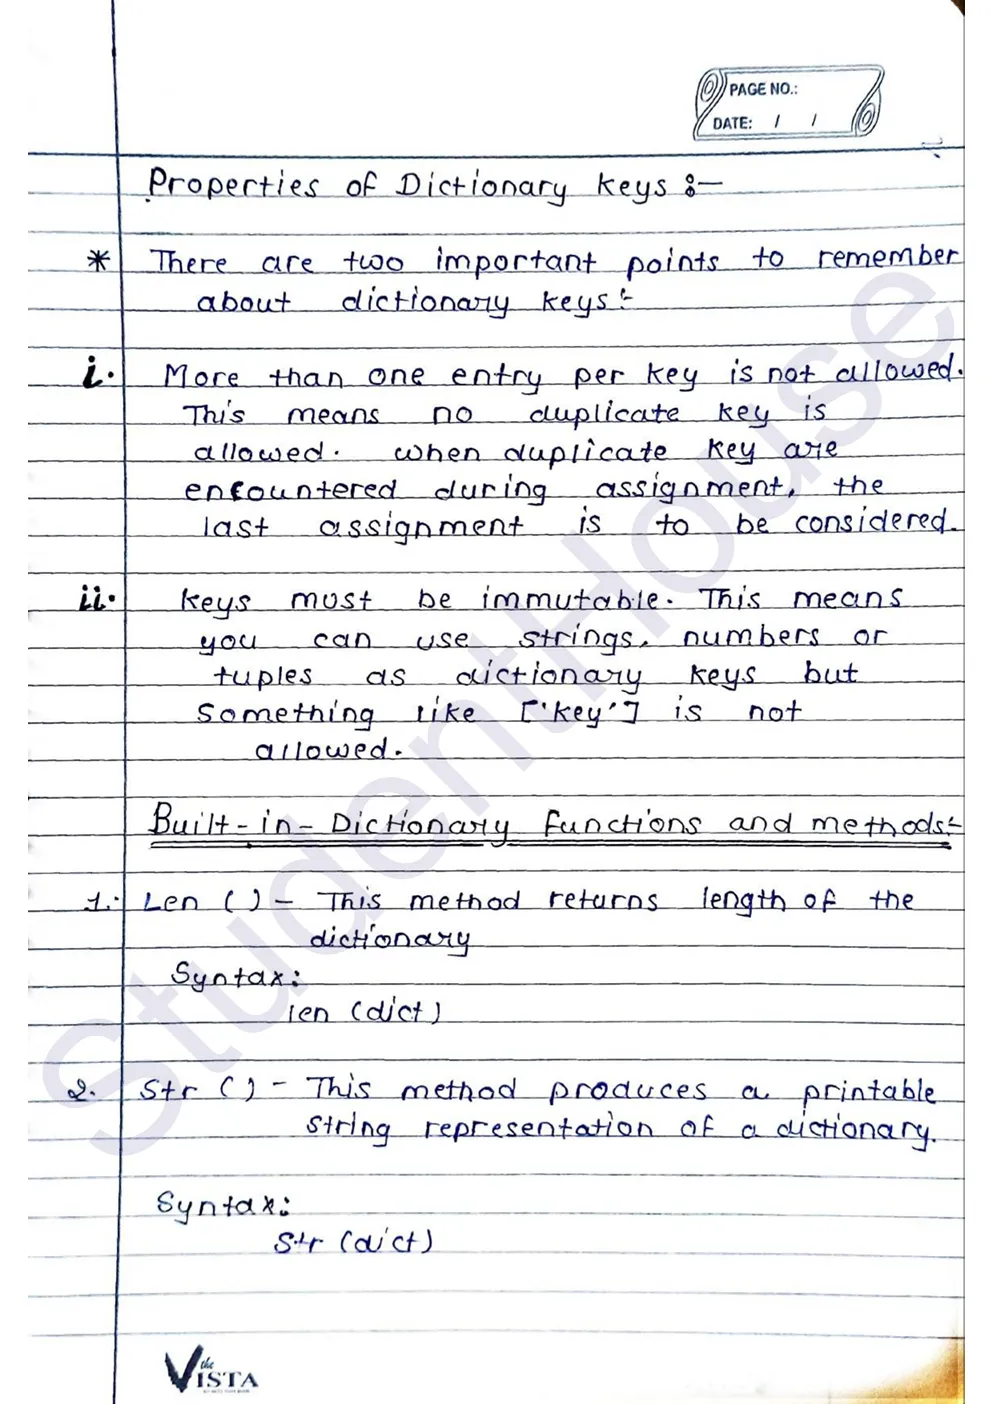 PAGE NO.:
DATE: / /
Properties of Dictionary keys :-
* There are two important points to remember
about dictionary keys:-
i. More than one entry per key is not allowed.
This means no duplicate key is
allowed. when duplicate key are
encountered during assignment, the
last assignment is to be considered.
ii. keys must be immutable. This means
you can use strings, numbers or
tuples as dictionary keys but
something like ['key'] is not
allowed.
Built-in-Dictionary functions and methods:-
1. Len ( ) - This method returns length of the
dictionary
Syntax:
len (dict)
2. Str ( ) - This method produces a printable
string representation of a dictionary.
Syntax:
Str (dict)
the
VISTA
StudentHouse